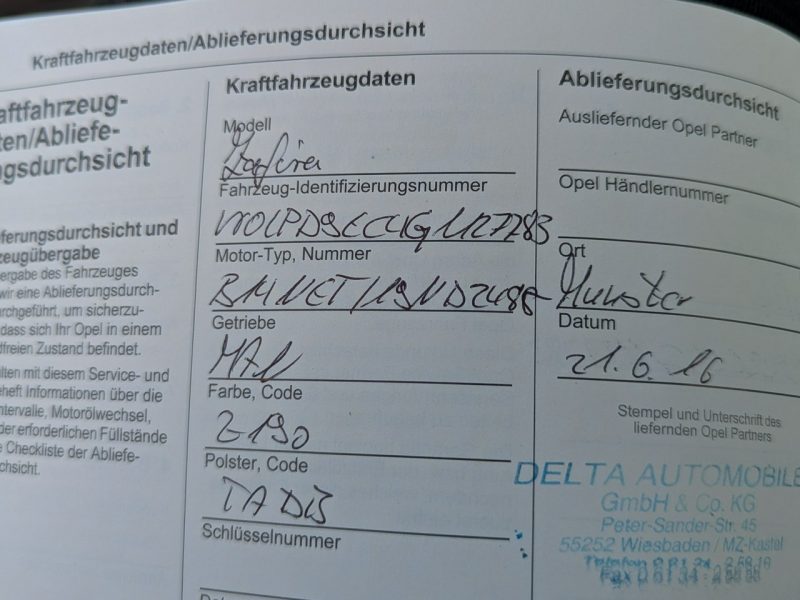 Kraftfahrzeugdaten/Ablieferungsdurchsicht
aftfahrzeug-
ten/Abliefe-
ngsdurchsicht
ferungsdurchsicht und
zeugübergabe
ergabe des Fahrzeuges
wir eine Ablieferungsdurch-
rchgeführt, um sicherzu-
dass sich Ihr Opel in einem
freien Zustand befindet.
lten mit diesem Service- und
heft Informationen über die
ntervalle, Motorölwechsel,
der erforderlichen Füllstände
e Checkliste der Abliefe-
chsicht.
Kraftfahrzeugdaten
Modell
Zafira
Fahrzeug-Identifizierungsnummer
Motor-Typ, Nummer
Getriebe
Farbe, Code
Z190
Polster, Code
Schlüsselnummer
Ablieferungsdurchsicht
Ausliefernder Opel Partner
Opel Händlernummer
Ort
Munster
Datum
21.6.16
Stempel und Unterschrift des
liefernden Opel Partners
DELTA AUTOMOBILE
GmbH & Co. KG
Peter-Sander-Str. 45
55252 Wiesbaden / MZ-Kastel
Telefon
Fax